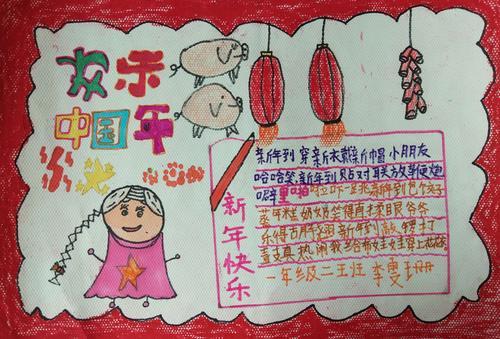 欢乐
中国年
新年快乐
新年到 穿新衣戴新帽 小朋友
哈哈笑 新年到 贴对联 放鞭炮
噼里啪啦吓一跳 新年到 包饺子
蒸年糕 奶奶笑得直揉眼 爷爷
乐得 新年到 敲锣打
真热闹
一年级二王班 李雯珊